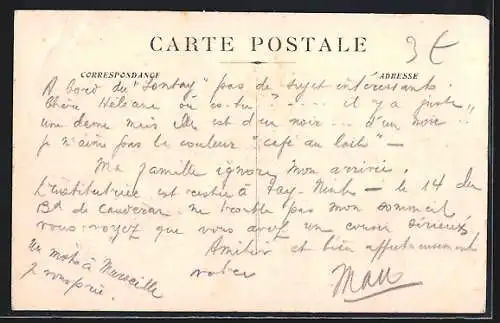 CARTE POSTALE
3€
CORRESPONDANCE
ADRESSE
A bord du "Sontay" pas de sujet intéressant.
Chère Hélène où es-tu " - . . . . il y a juste
une dame mais elle est d'un noir ... d'un noir ..
je n'aime pas la couleur "café au lait" —
Ma famille ignore mon arrivée.
L'institutrice est restée à Tay-Ninh — le 14 du
Bd de Caudéran ne trouble pas mon sommeil
vous voyez que vous avez un cousin sérieux
Amitiés et bien affectueusement
votre
Max
Un mot à Marseille
je vous prie.